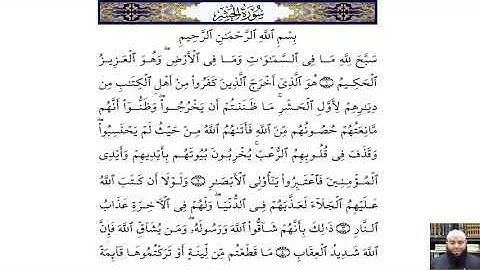 سُورَةُ الحَشْرِ
بِسْمِ اللَّهِ الرَّحْمَٰنِ الرَّحِيمِ
سَبَّحَ لِلَّهِ مَا فِي السَّمَٰوَٰتِ وَمَا فِي الْأَرْضِ ۖ وَهُوَ الْعَزِيزُ
الْحَكِيمُ ۝ هُوَ الَّذِي أَخْرَجَ الَّذِينَ كَفَرُوا مِنْ أَهْلِ الْكِتَٰبِ مِن
دِيَٰرِهِمْ لِأَوَّلِ الْحَشْرِ ۚ مَا ظَنَنتُمْ أَن يَخْرُجُوا ۖ وَظَنُّوا أَنَّهُم
مَّانِعَتُهُمْ حُصُونُهُم مِّنَ اللَّهِ فَأَتَىٰهُمُ اللَّهُ مِنْ حَيْثُ لَمْ يَحْتَسِبُوا ۖ
وَقَذَفَ فِي قُلُوبِهِمُ الرُّعْبَ ۚ يُخْرِبُونَ بُيُوتَهُم بِأَيْدِيهِمْ وَأَيْدِي
الْمُؤْمِنِينَ فَاعْتَبِرُوا يَٰأُولِي الْأَبْصَٰرِ ۝ وَلَوْلَا أَن كَتَبَ اللَّهُ
عَلَيْهِمُ الْجَلَاءَ لَعَذَّبَهُمْ فِي الدُّنْيَا ۖ وَلَهُمْ فِي الْآخِرَةِ عَذَابُ
النَّارِ ۝ ذَٰلِكَ بِأَنَّهُمْ شَاقُّوا اللَّهَ وَرَسُولَهُ ۖ وَمَن يُشَاقِّ اللَّهَ فَإِنَّ
اللَّهَ شَدِيدُ الْعِقَابِ ۝ مَا قَطَعْتُم مِّن لِّينَةٍ أَوْ تَرَكْتُمُوهَا قَائِمَةً